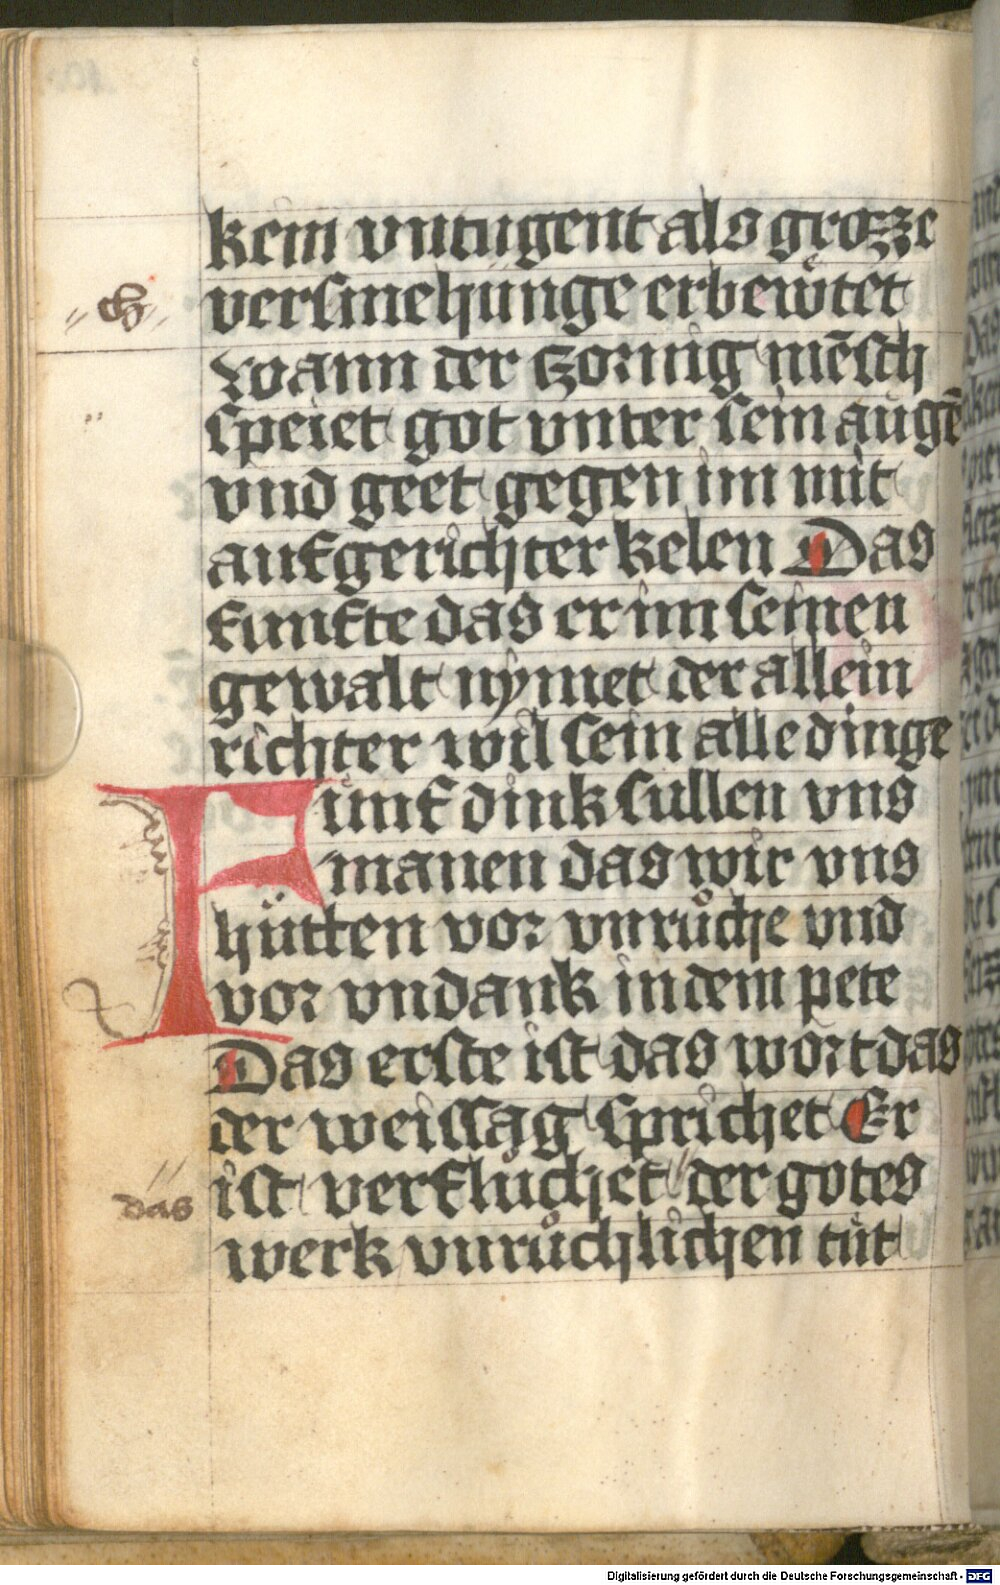 kein vntugent als grozze
versmehünge erbewtet
wann der zornig mēsch
speiet got vnter sein augē
vnd geet gegen im mit
aufgerichter kelen Das
funfte das er im seinen
gewalt nymet der allein
richter wil sein alle dinge
Fünf dink süllen vns
manen das wir vns
hütten vor vnrůche vnd
vor vndank in dem pete
Das erste ist das wort das
der weissag sprichet Er
das
ist verfluchet der gotes
werk vnrůchlichen tůt
Digitalisierung gefördert durch die Deutsche Forschungsgemeinschaft - DFG